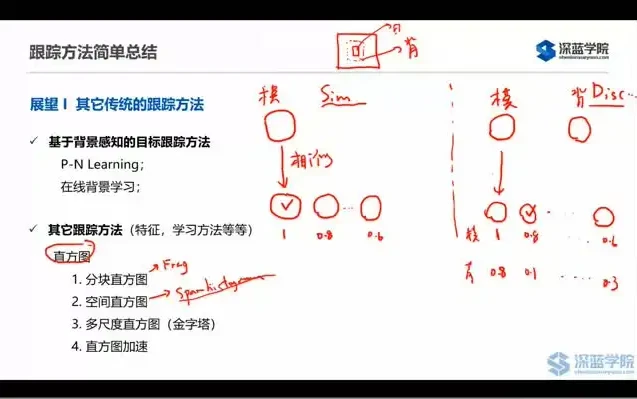 跟踪方法简单总结
深蓝学院
shenlanxueyuan.com
目
背
展望 I 其它传统的跟踪方法
✓ 基于背景感知的目标跟踪方法
P-N Learning；
在线背景学习；
✓ 其它跟踪方法（特征，学习方法等等）
直方图
1. 分块直方图
Frag
2. 空间直方图
3. 多尺度直方图（金字塔）
4. 直方图加速
模 Sim
相似
1 0.8 ... 0.6
模 背 Disc...
模 1 0.8 0.6
背 0.8 0.1 ..... 0.3
深蓝学院
shenlanxueyuan.com